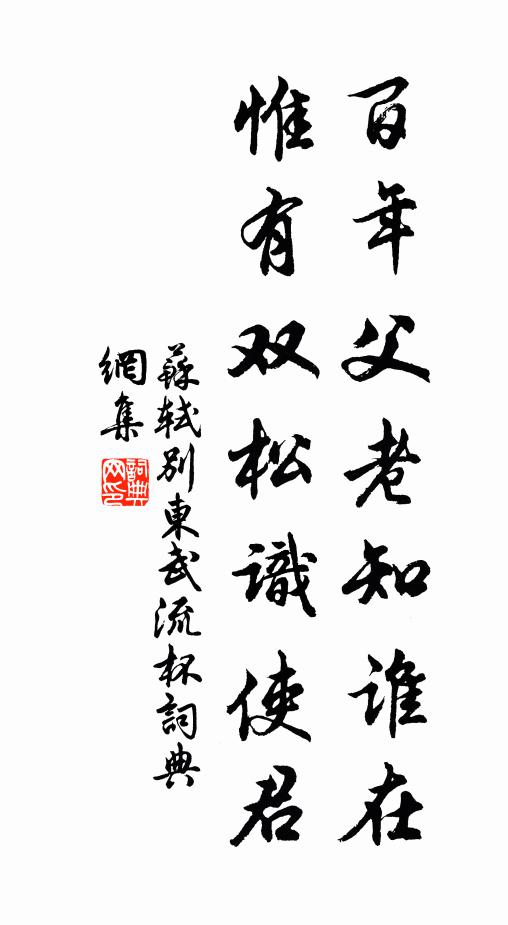 百年父老知谁在
惟有双松識使君
蘇軾別東武流杯詞典
網集
詞典
网印